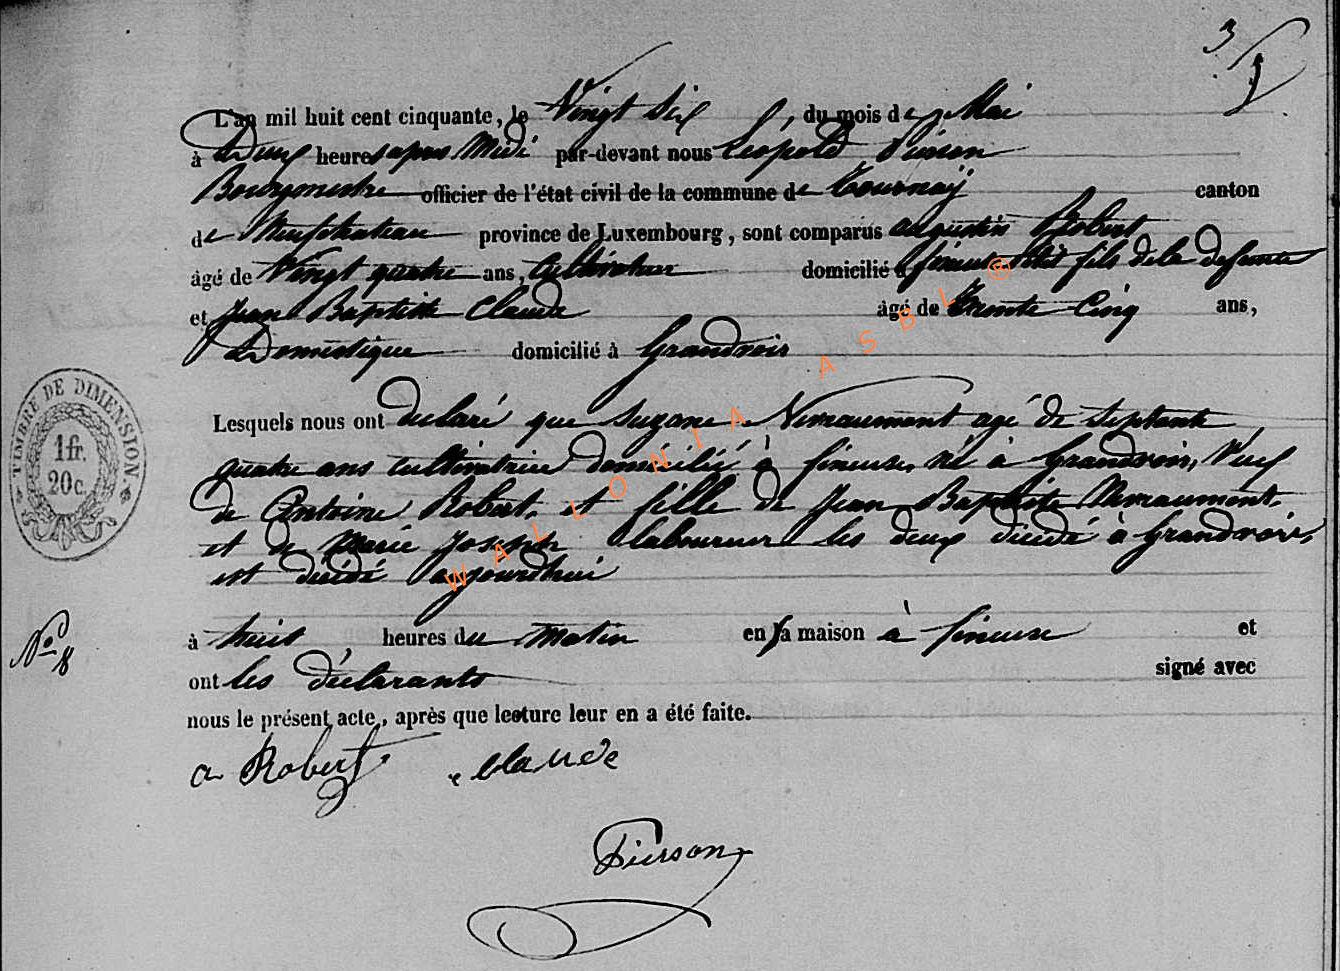 3
L'an mil huit cent cinquante, le Vingt Six, du mois de Mai
à Deux heures apres Midi par-devant nous Léopold Pierson
Bourgmestre officier de l'état civil de la commune de Tournay canton
de Neufchateau province de Luxembourg, sont comparus augustin Robert
âgé de Vingt quatre ans, Cultivateur domicilié à fineuse petit fils de la defunte
et Jean Baptiste Claude âgé de Trente Cinq ans,
Domestique domicilié à Grandvoir
TIMBRE DE DIMENSION
1fr.
20c.
Lesquels nous ont declaré que Suzane Nimaumont agé de Septante
quatre ans cultivatrice domicilié à fineuse, né à Grandvoir, Veuf
de Antoine Robert, et fille de Jean Baptiste Nimaumont
et de Marie Joseph laboureur les deux décédé à Grandvoir,
est décédé aujourdhui
No 8
à huit heures du matin en sa maison à fineuse et
ont les déclarants signé avec
nous le présent acte, après que lecture leur en a été faite.
a Robert claude
Pierson
WALLONIA ASBL ©